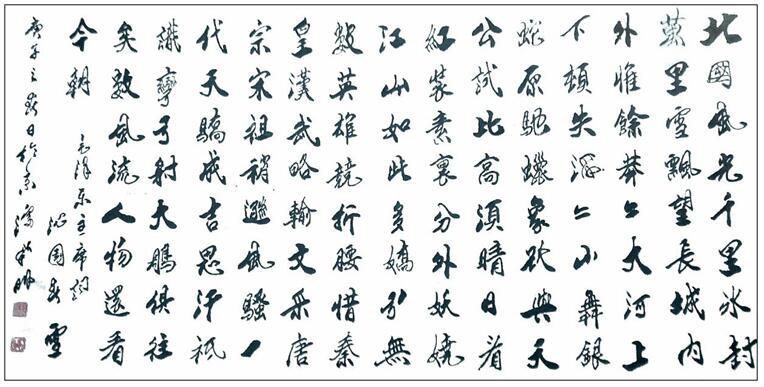 北國風光千里冰封
萬里雪飄望長城內
外惟餘莽々大河上
下頓失滔々山舞銀
蛇原馳蠟象欲與天
公試比高須晴日看
紅裝素裹分外妖嬈
江山如此多嬌引無
數英雄競折腰惜秦
皇漢武略輸文采唐
宗宋祖稍遜風騷一
代天驕成吉思汗祇
識彎弓射大鵰俱往
矣數風流人物還看
今朝
毛澤東主席詞
沁園春 雪
庚子之春日於京